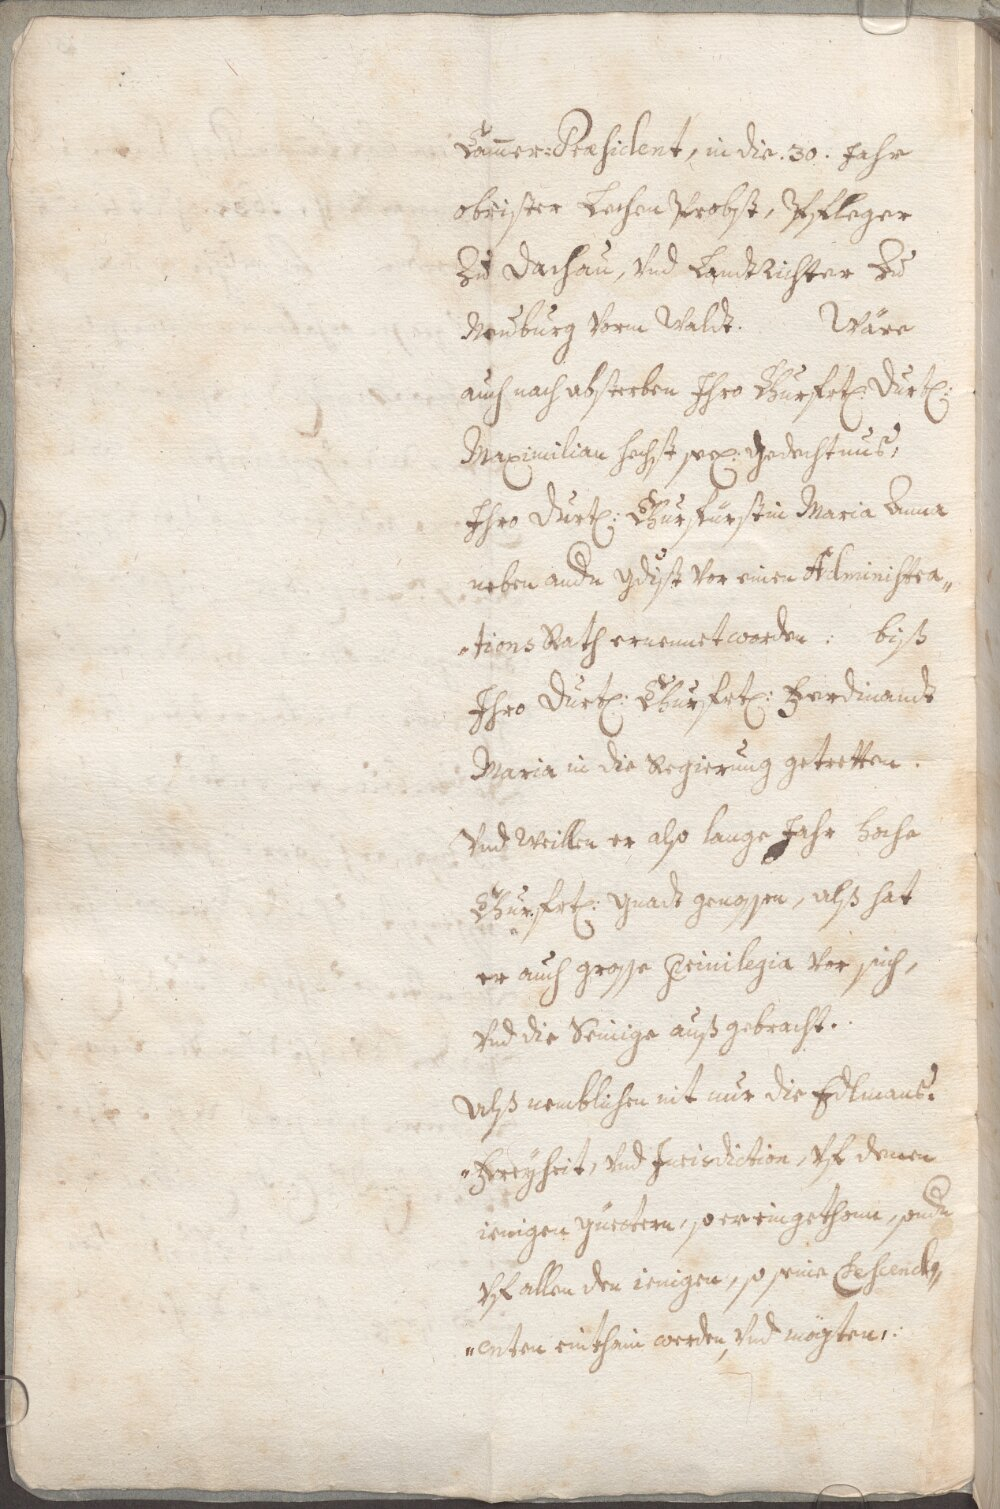 Cam̄er=Præsident, in die .30. Jahr
obrister LechenProbst, Pfleger
Zu Dachau, Vnd LandtRichter Zu
Neuburg Vorm Waldt. Wäre
auch nach absterben Ihro Churfrt: Durtl:
Maximilian hechst seel: gedechtnus,
Ihro Durtl: Churfürstin Maria Anna
neben andn gdist Vor einen Administra„
„tions Rath ernennet worden: biß
Ihro Durtl: Churfrt: Ferdinandt
Maria in die Regierung getretten.
Vnd Weillen er also lange Jahr hoche
Churfrt: gnadt genossen, alß hat
er auch grosse Privilegia Vor sich,
Vnd die Seinige auß gebracht.
Alß nemblichen nit nur die Edlmans=
„Freyheit, Vnd Jurisdiction, Vf denen
ienigen güettern, so er eingethan, sondn
Vf allen den ienigen, so seine Descend„
„enten einthuin werden, Vnd mögten,: